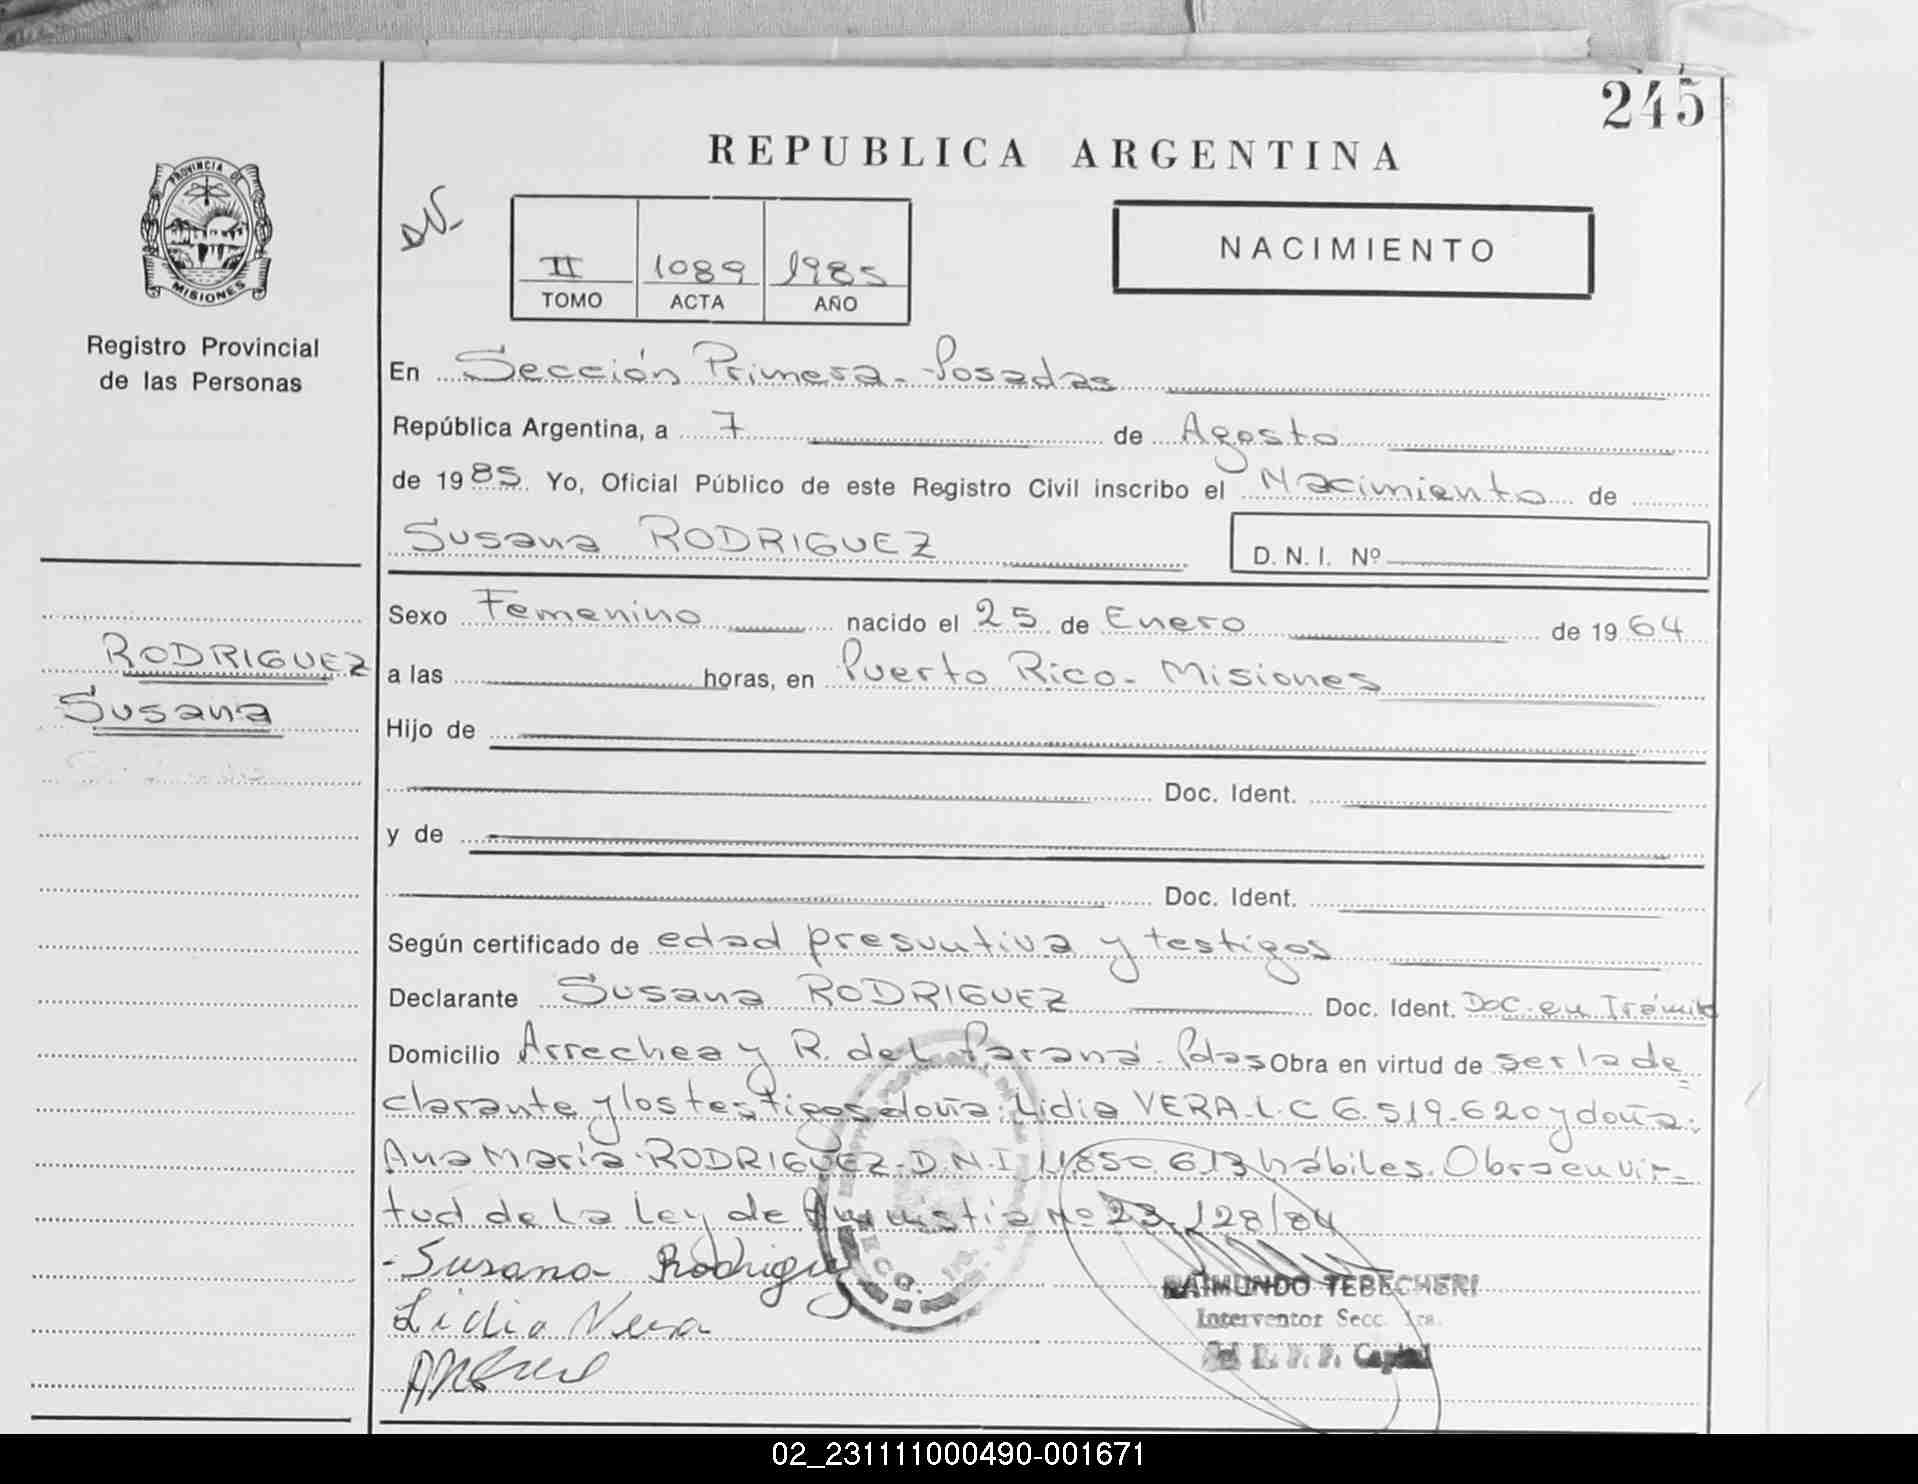 245
REPUBLICA ARGENTINA
PROVINCIA DE
MISIONES
Registro Provincial
de las Personas
II 1089 1985
TOMO ACTA AÑO
NACIMIENTO
En Sección Primera - Posadas
República Argentina, a 7 de Agosto
de 1985. Yo, Oficial Público de este Registro Civil inscribo el Nacimiento de
Susana RODRIGUEZ D. N. I. Nº
RODRIGUEZ
Susana
Sexo Femenino nacido el 25 de Enero de 1964
a las horas, en Puerto Rico - Misiones
Hijo de
Doc. Ident.
y de
Doc. Ident.
Según certificado de edad presuntiva y testigos
Declarante Susana RODRIGUEZ Doc. Ident. Doc. en Trámite
Domicilio Arrechea y R. del Paraná - Pdas Obra en virtud de ser la de
clarante y los testigos doña: Lidia VERA - L. C 6.519.620 y doña:
Ana María RODRIGUEZ - D.N.I 11.850.613 hábiles. Obra en vir-
tud de la Ley de Amnistia nº 23.128/84
Susana Rodriguez
Lidia Vera
RAIMUNDO TEBECHERI
Interventor Secc. 1ra.
Del R. P. P. Capital
02_231111000490-001671